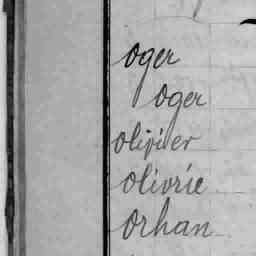 Oger
Oger
Olivier
Olivrie
Orhan